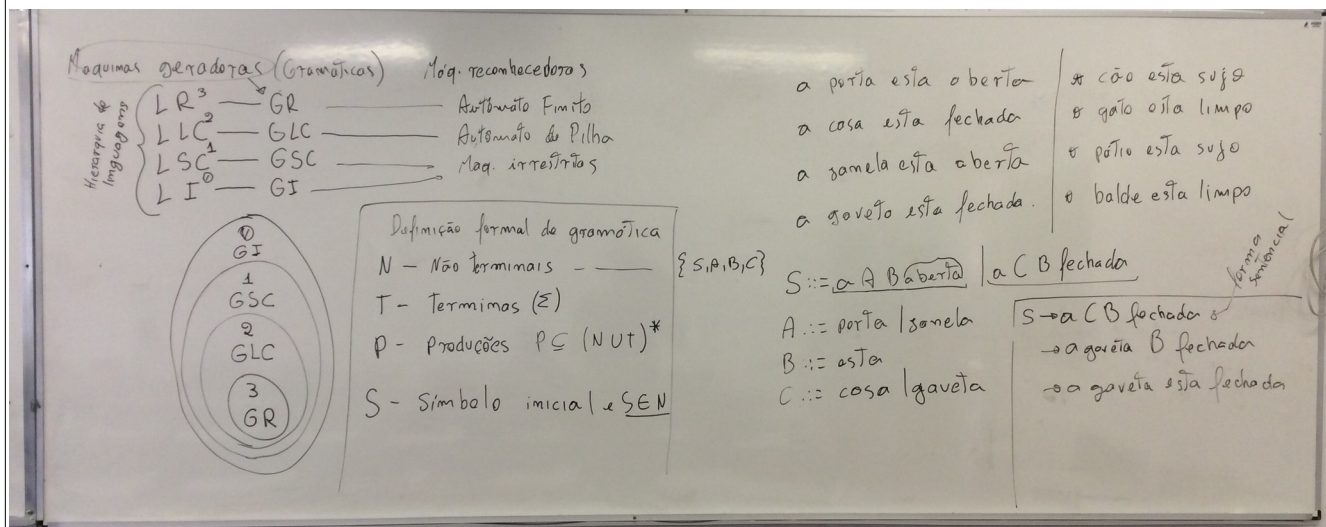 Maquinas geradoras (Gramáticas) Máq. reconhecedoras
Hierarquia de linguagens
LR³ — GR — Autômato Finito
LLC² — GLC — Autômato de Pilha
LSC¹ — GSC — Maq. irrestritas
LI⁰ — GI
0
GI
1
GSC
2
GLC
3
GR
Definição formal de gramática
N – Não terminais – — {S,A,B,C}
T – Terminais (Σ)
P – Produções P ⊆ (N U T)*
S – Símbolo inicial e S ∈ N
a porta esta aberta
a casa esta fechada
a janela esta aberta
a gaveta esta fechada.
o cão esta sujo
o gato esta limpo
o pátio esta sujo
o balde esta limpo
S ::= a A B aberta | a C B fechada
A ::= porta | janela
B ::= esta
C ::= casa | gaveta
forma sentencial
S → a C B fechada
→ a gaveta B fechada
→ a gaveta esta fechada